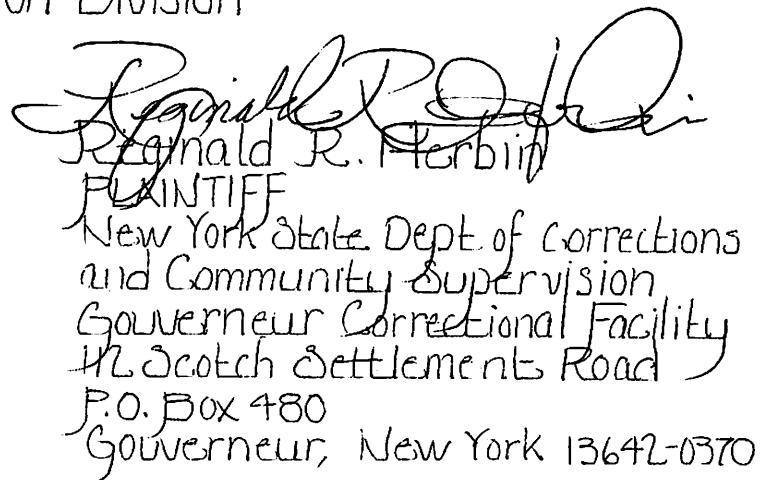 on Division
Reginald R. Herbin
PLAINTIFF
New York State Dept of Corrections
and Community Supervision
Gouverneur Correctional Facility
112 Scotch Settlement Road
P.O. Box 480
Gouverneur, New York 13642-0370